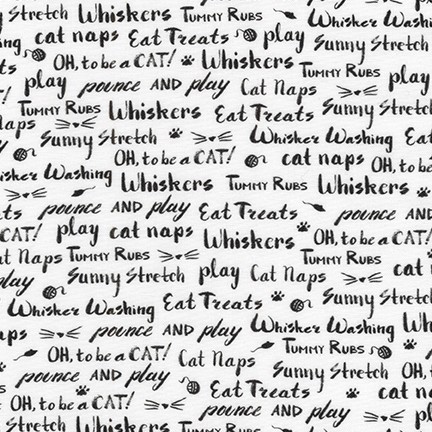 Whiskers Tummy Rubs Whisker Washing
cat naps Eat Treats play Sunny Stretch
OH, to be a CAT! Whiskers Tummy Rubs
play pounce AND play Cat Naps play
Tummy Rubs Whiskers Eat Treats Sunny Stretch
Naps Sunny Stretch Whisker Washing Eat
OH, to be a CAT! cat naps OH, to be
Whisker Washing Whiskers Tummy Rubs Whiskers
pounce AND play Eat Treats pounce AND
CAT! play cat naps Whiskers OH, to be a CAT!
Cat Naps Tummy Rubs Sunny Stretch play Cat Naps cat
play Eat Treats Sunny Stretch
Whisker Washing
naps pounce AND play Whisker Washing Whiskers
OH, to be a CAT! Cat Naps Tummy Rubs
pounce AND play Sunny Stretch OH,
OH, to be a CAT! Eat Treats cat naps
Sunny Stretch Whiskers pounce AND play
Whisker Washing